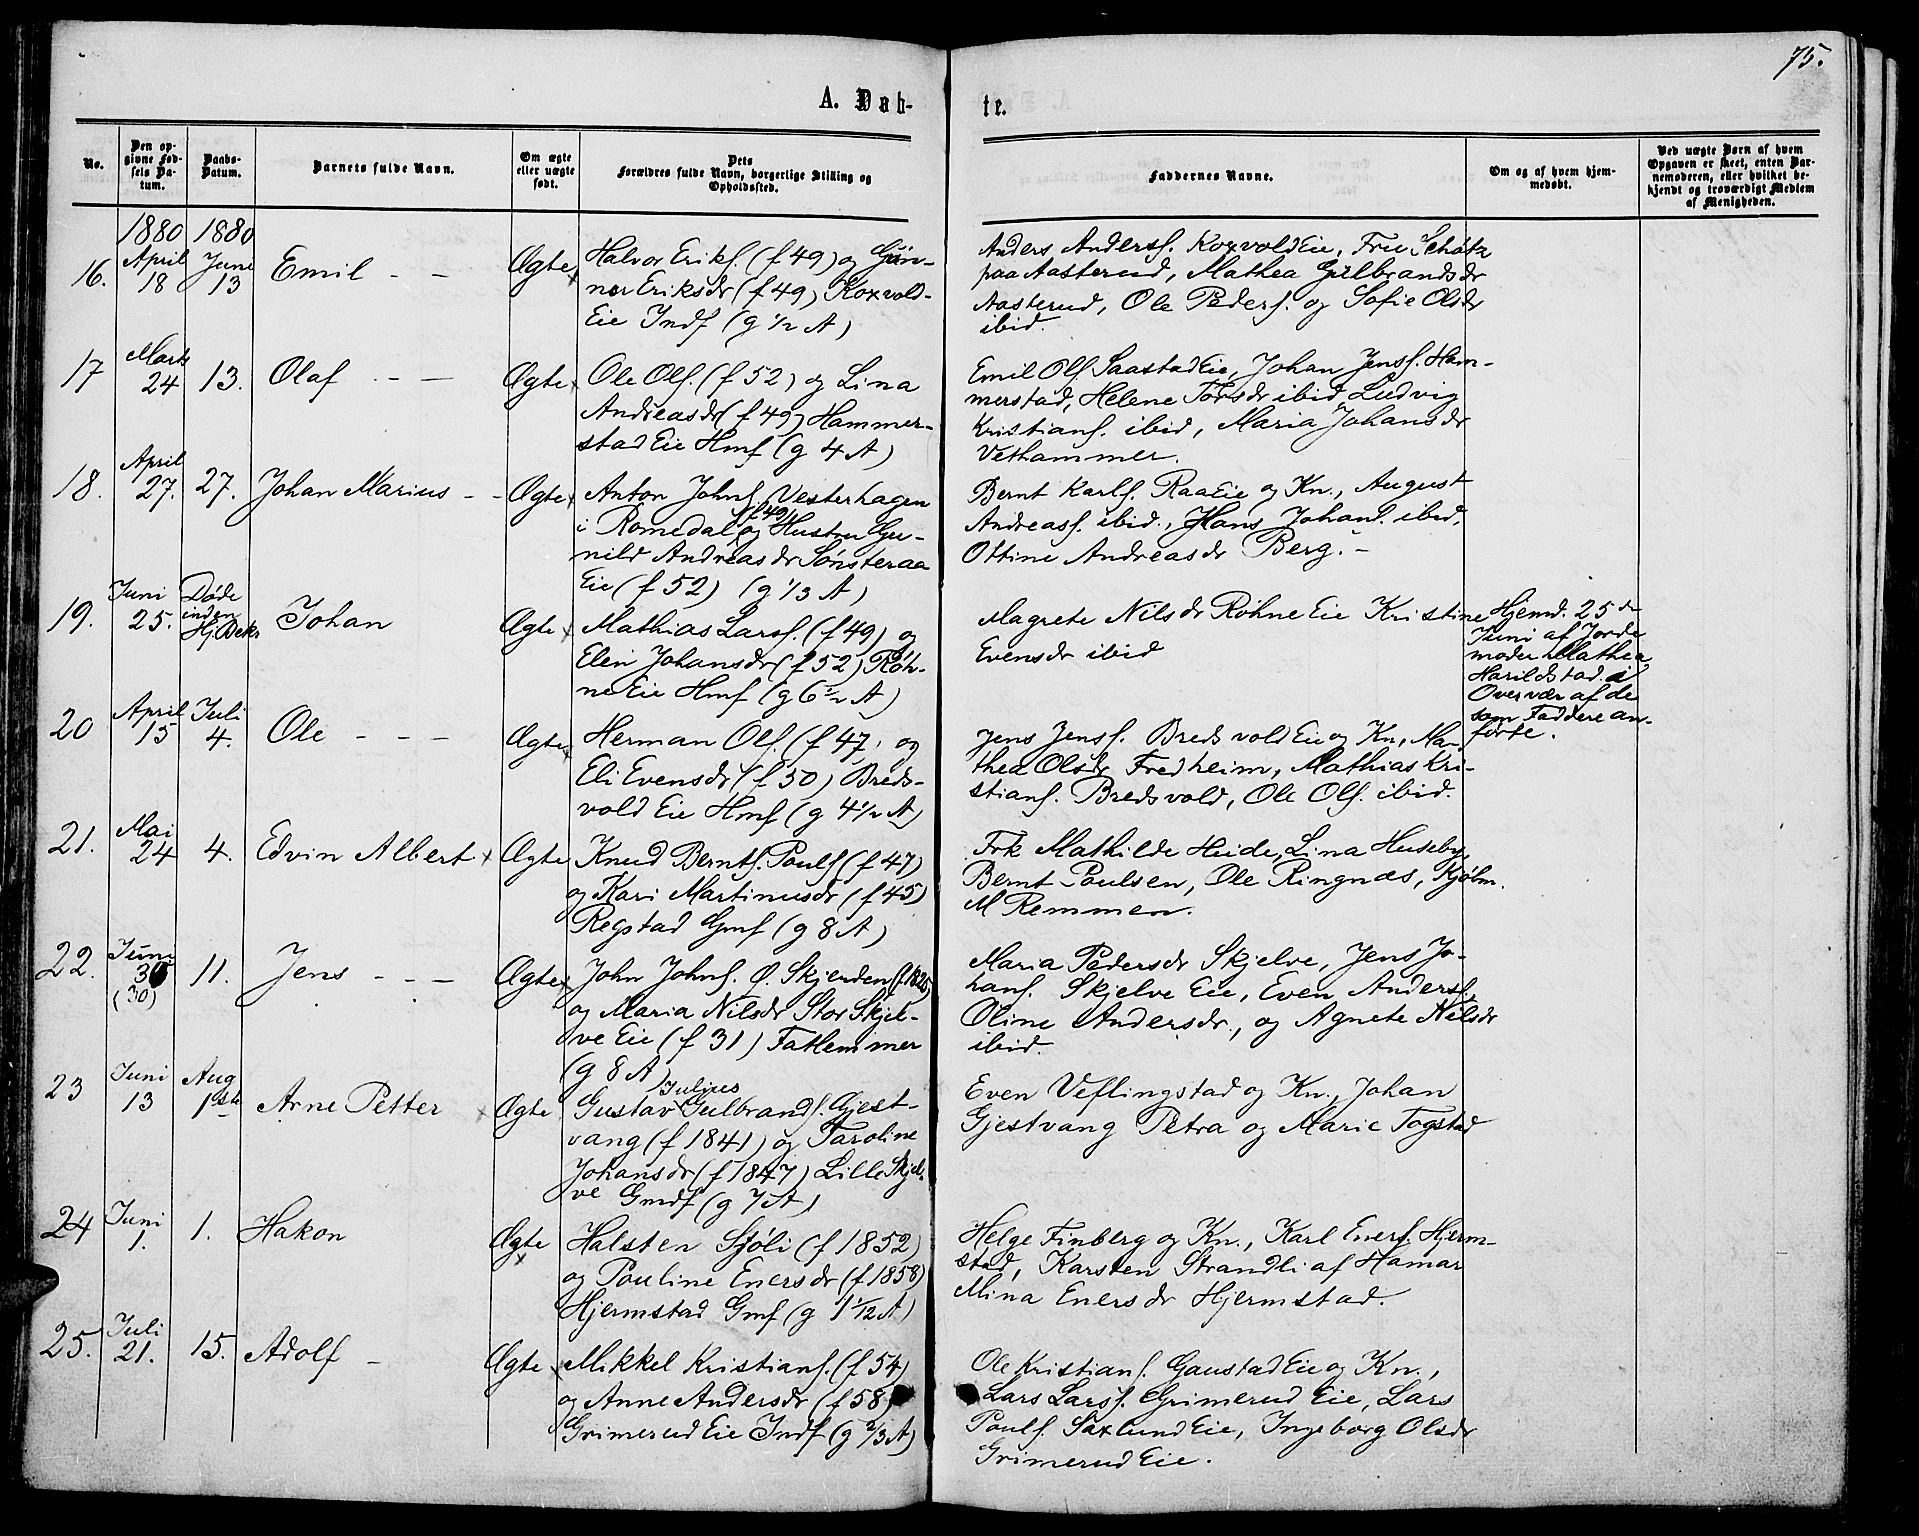 75.
A. Døb-
te.
No.
Den op-
givne Fød-
sels Da-
tum.
Daabs-
Datum.
Barnets fulde Navn.
Om ægte
eller uægte
født.
Dets
Forældres fulde Navn, borgerlige Stilling og
Opholdssted.
Faddernes Navne.
Om og af hvem hjem-
medøbt.
Ved uægte Børn af hvem
Opgaven er skeet, enten Bar-
nemoderen, eller hvilket be-
kjendt og troværdigt Medlem
af Menigheden.
1880 1880
16.
April
18
Juni
13
Emil
Ægte
Halvor Eriks. (f 49) og Gun-
nor Eriksdr (f 49) Koxvold-
Eie Indf (g 1/2 A)
Anders Anders. KoxvoldEie, Fru Schøtz
paa Aasterud, Mathea Gulbrandsdr
Aasterud, Ole Peders. og Sofie Olsdr
ibid.
17
Marts
24
13.
Olaf
Ægte
Ole Ols. (f 52) og Lina
Andreasdr (f 49) Hammer-
stad Eie Hmf (g 4 A)
Emil Ols SaastadEie, Johan Jens. Ham-
merstad, Helene Torsdr ibid, Ludvig
Kristians. ibid, Maria Johansdr
Vethammer.
18.
April
27.
27.
Johan Marius
Ægte
Anton Johns. Vesterhagen
i Romedal (f 49) og Hustru Gu-
nild Andreasdr Sønsteraa
Eie (f 52) (g 1/3 A)
Bernt Karls. RaaEie og Kn., August
Andreass. ibid., Hans Johans. ibid,
Ottine Andreasdr Berg.
19.
Juni
25.
Døde
inden
Hj. Bekr
Johan
Ægte
Mathias Lars. (f 49) og
Elen Johansdr (f 52) Røh-
ne Eie Hmf (g 6 1/2 A)
Magrete Nilsdr Røhne Eie Kristine
Evensdr ibid
Hjemd. 25de
Juni af Jorde
moder Mathea
Harildstad i
Overvær af de
som Faddere an-
førte.
20
April
15
Juli
4.
Ole
Ægte
Herman Ols. (f 47, og
Eli Evensdr (f 50) Breds-
vold Eie Hmf (g 4 1/2 A)
Jens Jens. Bredsvold Eie og Kn, Ma-
thea Olsdr Fredheim, Mathias Kri-
stians. Bredsvold, Ole Ols. ibid.
21.
Mai
24
4.
Edvin Albert
Ægte
Knud Bernts. Pouls (f 47)
og Kari Martinusdr (f 45)
Regstad Gmf (g 8 A)
Frk Mathilde Heide, Lina Huseby,
Bernt Paulsen, Ole Ringnæs, Kjøbm.
M Remmen.
22.
Juni
30
(30)
11.
Jens
Ægte
John Johns. Ø. Skjerden (f. 1825)
og Maria Nilsdr Stor Skjel-
ve Eie (f 31) Fatlemmer
(g 8 A)
Maria Pedersdr Skjelve, Jens Jo-
hans. Skjelve Eie, Even Anders.,
Oline Andersdr., og Agnete Nilsdr
ibid.
23
Juni
13
Aug
1ste
Arne Petter
Ægte
Julius
Gustav Gulbrands. Gjest-
vang (f 1841) og Taroline
Johansdr (f 1847) Lille Skjel-
ve Gmdf (g 7 A)
Even Veflingstad og Kn., Johan
Gjestvang Petra og Marie Togstad
24
Juni
1.
1.
Hakon
Ægte
Halsten Sjøli (f 1852)
og Pouline Enersdr (f 1858)
Hjermstad Gmf (g 1 1/12 A)
Helge Finberg og Kn., Karl Eners. Hjerm-
stad, Karsten Strandli af Hamar
Mina Enersdr Hjermstad.
25.
Juli
21.
15.
Adolf
Ægte
Mikkel Kristians. (f 54)
og Anne Andersdr (f 58)
Grimerud Eie Indf (g 2/3 A)
Ole Kristians. Gaustad Eie og Kn.,
Lars Lars. Grimerud Eie, Lars
Pouls. Saxlund Eie, Ingeborg Olsdr
Grimerud Eie.